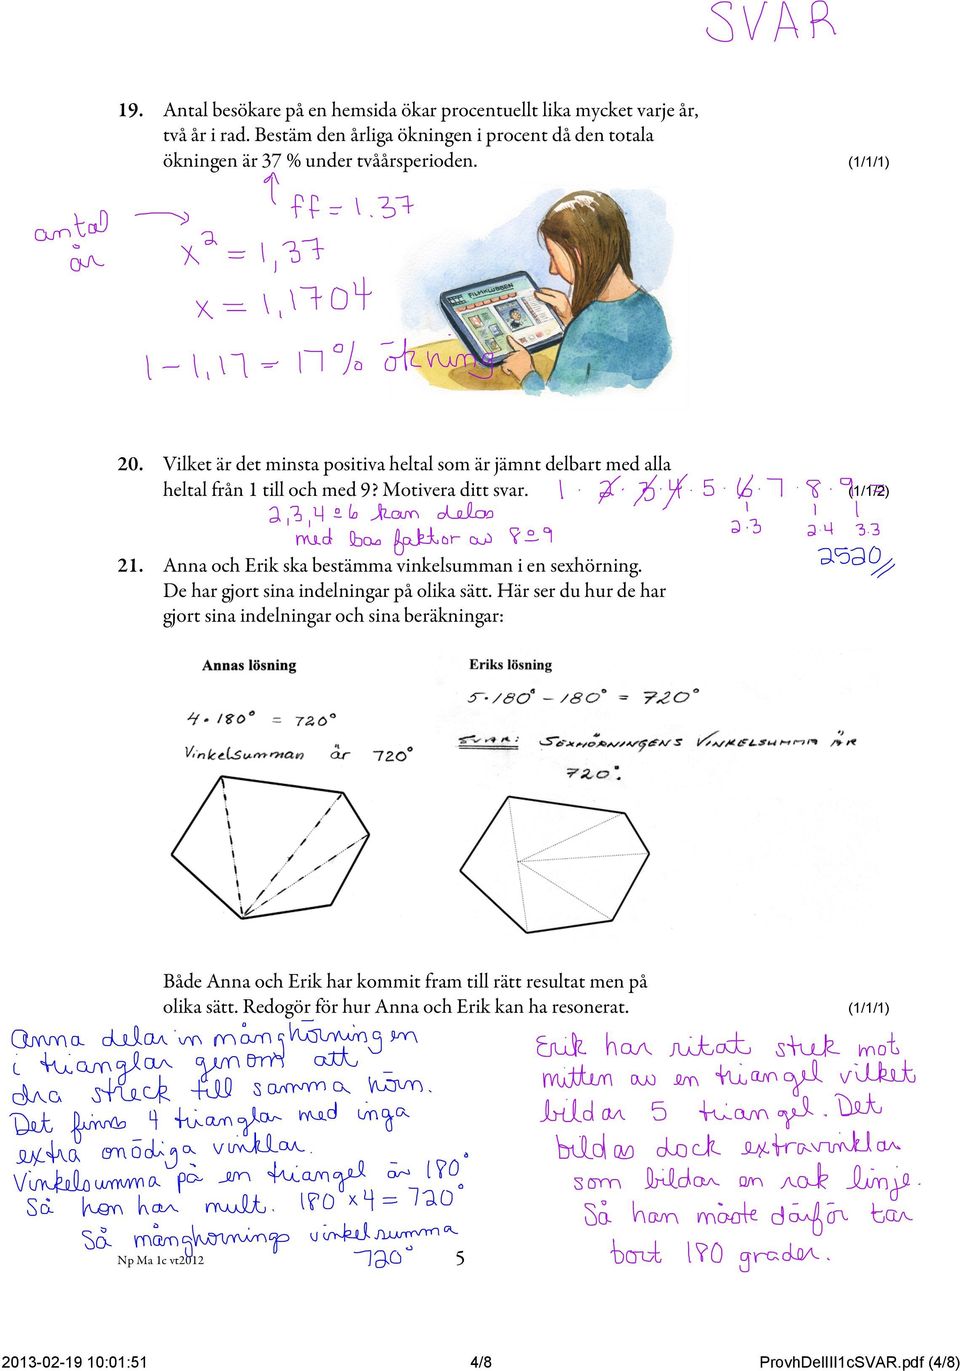 SVAR
19. Antal besökare på en hemsida ökar procentuellt lika mycket varje år,
två år i rad. Bestäm den årliga ökningen i procent då den totala
ökningen är 37 % under tvåårsperioden. (1/1/1)
ff = 1.37
antal
år
x² = 1,37
x = 1,1704
1 - 1,17 = 17% ökning
FILMKLUBBEN
20. Vilket är det minsta positiva heltal som är jämnt delbart med alla
heltal från 1 till och med 9? Motivera ditt svar. (1/1/2)
1 · 2 · 3 · 4 · 5 · 6 · 7 · 8 · 9
2·3 2·4 3·3
2,3,4 o 6 kan delas
med bas faktor av 8 o 9
2520
21. Anna och Erik ska bestämma vinkelsumman i en sexhörning.
De har gjort sina indelningar på olika sätt. Här ser du hur de har
gjort sina indelningar och sina beräkningar:
Annas lösning
4 · 180° = 720°
Vinkelsumman är 720°
Eriks lösning
5·180° - 180° = 720°
SVAR: SEXHÖRNINGENS VINKELSUMMA ÄR
720°.
Både Anna och Erik har kommit fram till rätt resultat men på
olika sätt. Redogör för hur Anna och Erik kan ha resonerat. (1/1/1)
Anna delar in månghörningen
i trianglar genom att
dra streck till samma hörn.
Det finns 4 trianglar med inga
extra onödiga vinklar.
Vinkelsumma på en triangel är 180°
Så hon har mult. 180 x 4 = 720°
Så månghörnings vinkelsumma
720°
Erik har ritat strek mot
mitten av en triangel vilket
bildar 5 triangel. Det
bildas dock extravinklar
som bildar en rak linje.
Så han måste därför tar
bort 180 grader.
Np Ma 1c vt2012 5
2013-02-19 10:01:51 4/8 ProvhDelIII1cSVAR.pdf (4/8)